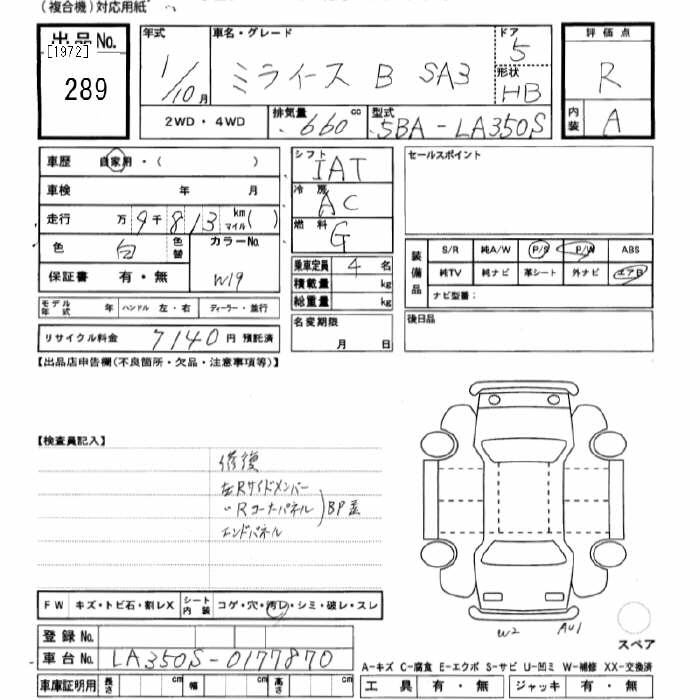 (複合機)対応用紙
出品No.
[1972]
289
年式
1/10月
車名・グレード
ミライース B SA3
ドア
5
形状
HB
2WD・4WD
排気量
660 cc
型式
5BA-LA350S
評価点
R
内装
A
車歴 自家用・( )
車検 年 月
走行 万 9千813 km マイル( )
色 白 色替
カラーNo.
W19
保証書 有・無
モデル年式 年 ハンドル 左・右 ディーラー・並行
リサイクル料金 7140円 預託済
シフト
IAT
冷房
AC
燃料
G
乗車定員 4名
積載量 kg
総重量 kg
名変期限
月 日
セールスポイント
装備品
S/R 純A/W P/S P/W ABS
純TV 純ナビ 革シート 外ナビ エアB
ナビ型番:
後日品
【出品店申告欄(不良箇所・欠品・注意事項等)】
【検査員記入】
修復
左Rサイドメンバー
〃Rコーナーパネル
エンドパネル
BP歪
FW キズ・トビ石・割レX シート内装 コゲ・穴・汚レ・シミ・破レ・スレ
登録No.
車台No. LA350S-0177870
車庫証明用 長さ cm 幅 cm 高さ cm
W2 AU1
スペア
A-キズ C-腐食 E-エクボ S-サビ U-凹ミ W-補修 XX-交換済
工具 有・無 ジャッキ 有・無